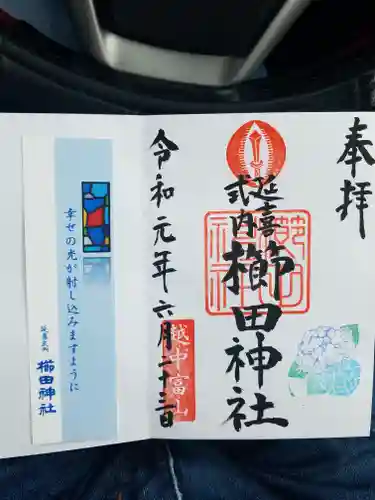 奉拝
延喜
式内
櫛田神社
櫛田神社
越中富山
令和元年六月二十三日
幸せの光が射し込みますように
延喜式内
櫛田神社